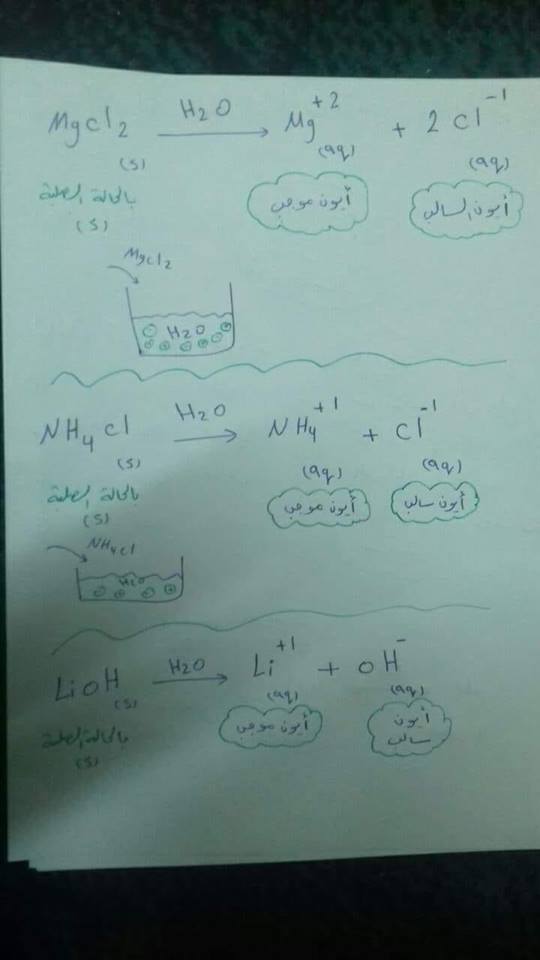 MgCl2 (s) H2O → Mg+2 (aq) + 2 Cl-1 (aq)
بالحالة الصلبة أيون موجب أيون السالب
(s)
MgCl2
H2O
NH4 Cl (s) H2O → NH4+1 (aq) + Cl-1 (aq)
بالحالة الصلبة أيون موجب أيون سالب
(s)
NH4Cl
H2O
LiOH (s) H2O → Li+1 (aq) + OH- (aq)
بالحالة الصلبة أيون موجب أيون سالب
(s)